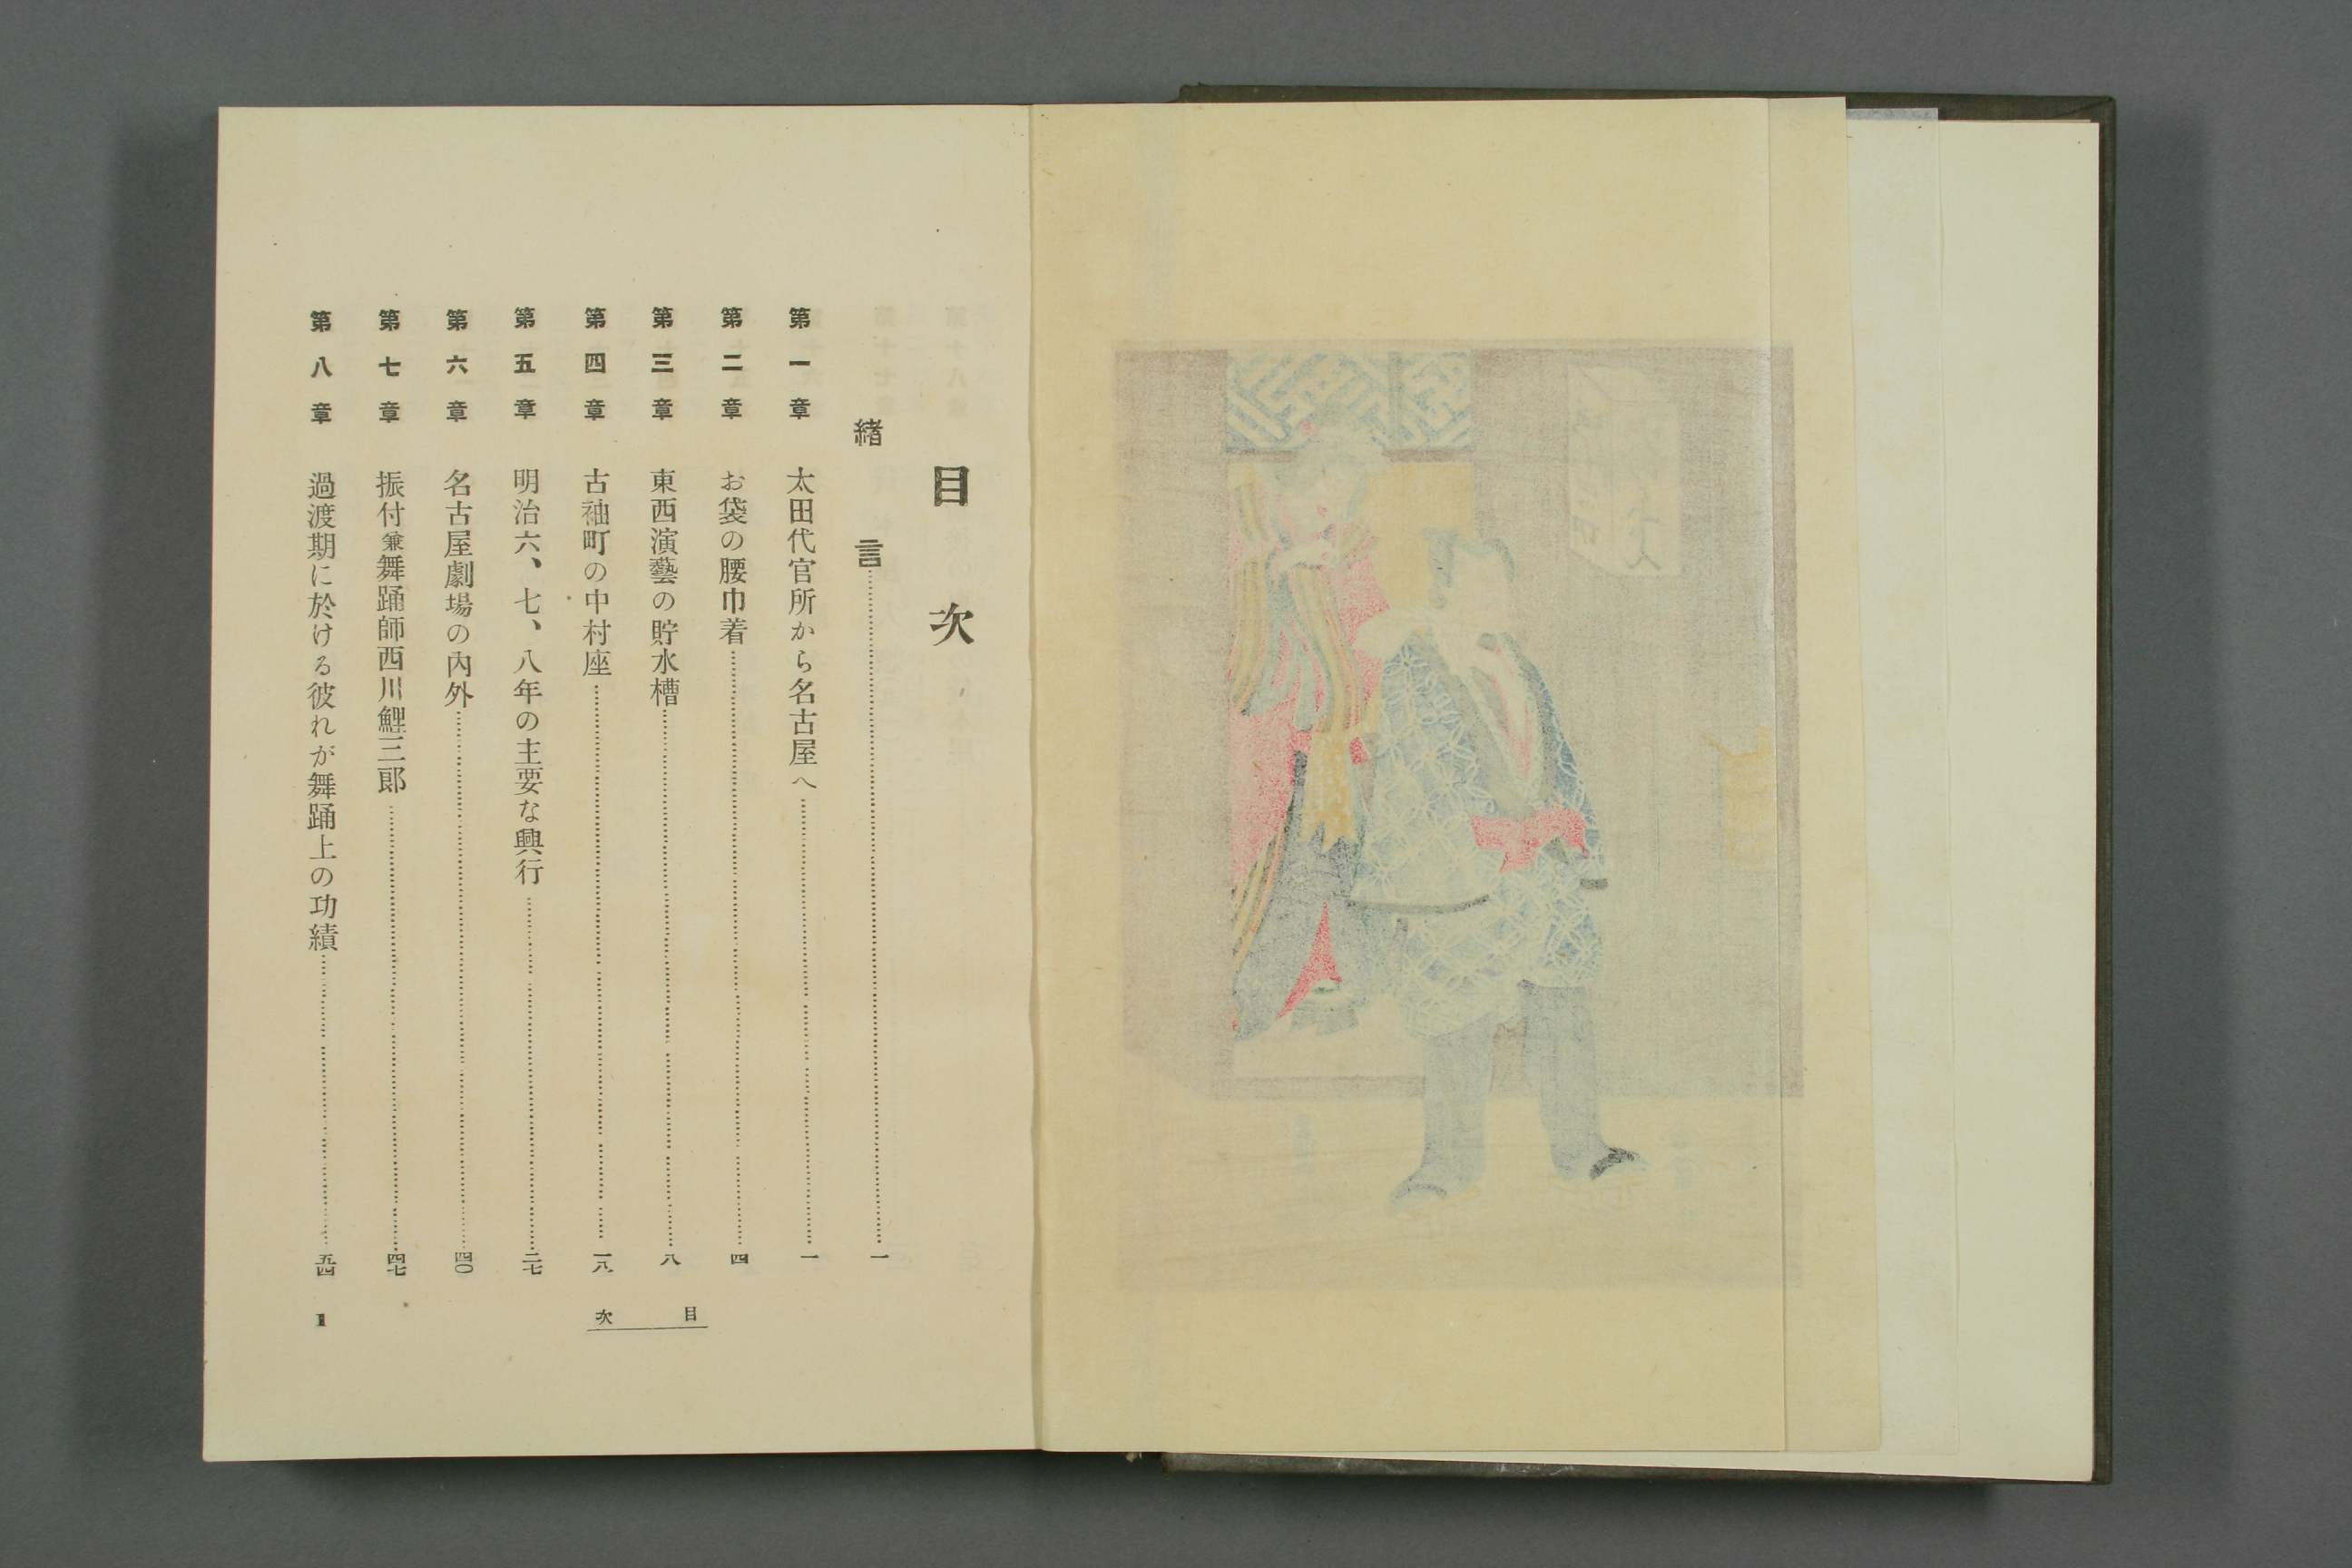 目次
緒言……一
第一章 太田代官所から名古屋へ……一
第二章 お袋の腰巾着……四
第三章 東西演藝の貯水槽……八
第四章 古袖町の中村座……一八
第五章 明治六、七、八年の主要な興行……二七
第六章 名古屋劇場の內外……四〇
第七章 振付兼舞踊師西川鯉三郞……四七
第八章 過渡期に於ける彼れが舞踊上の功績……五四
目次
1